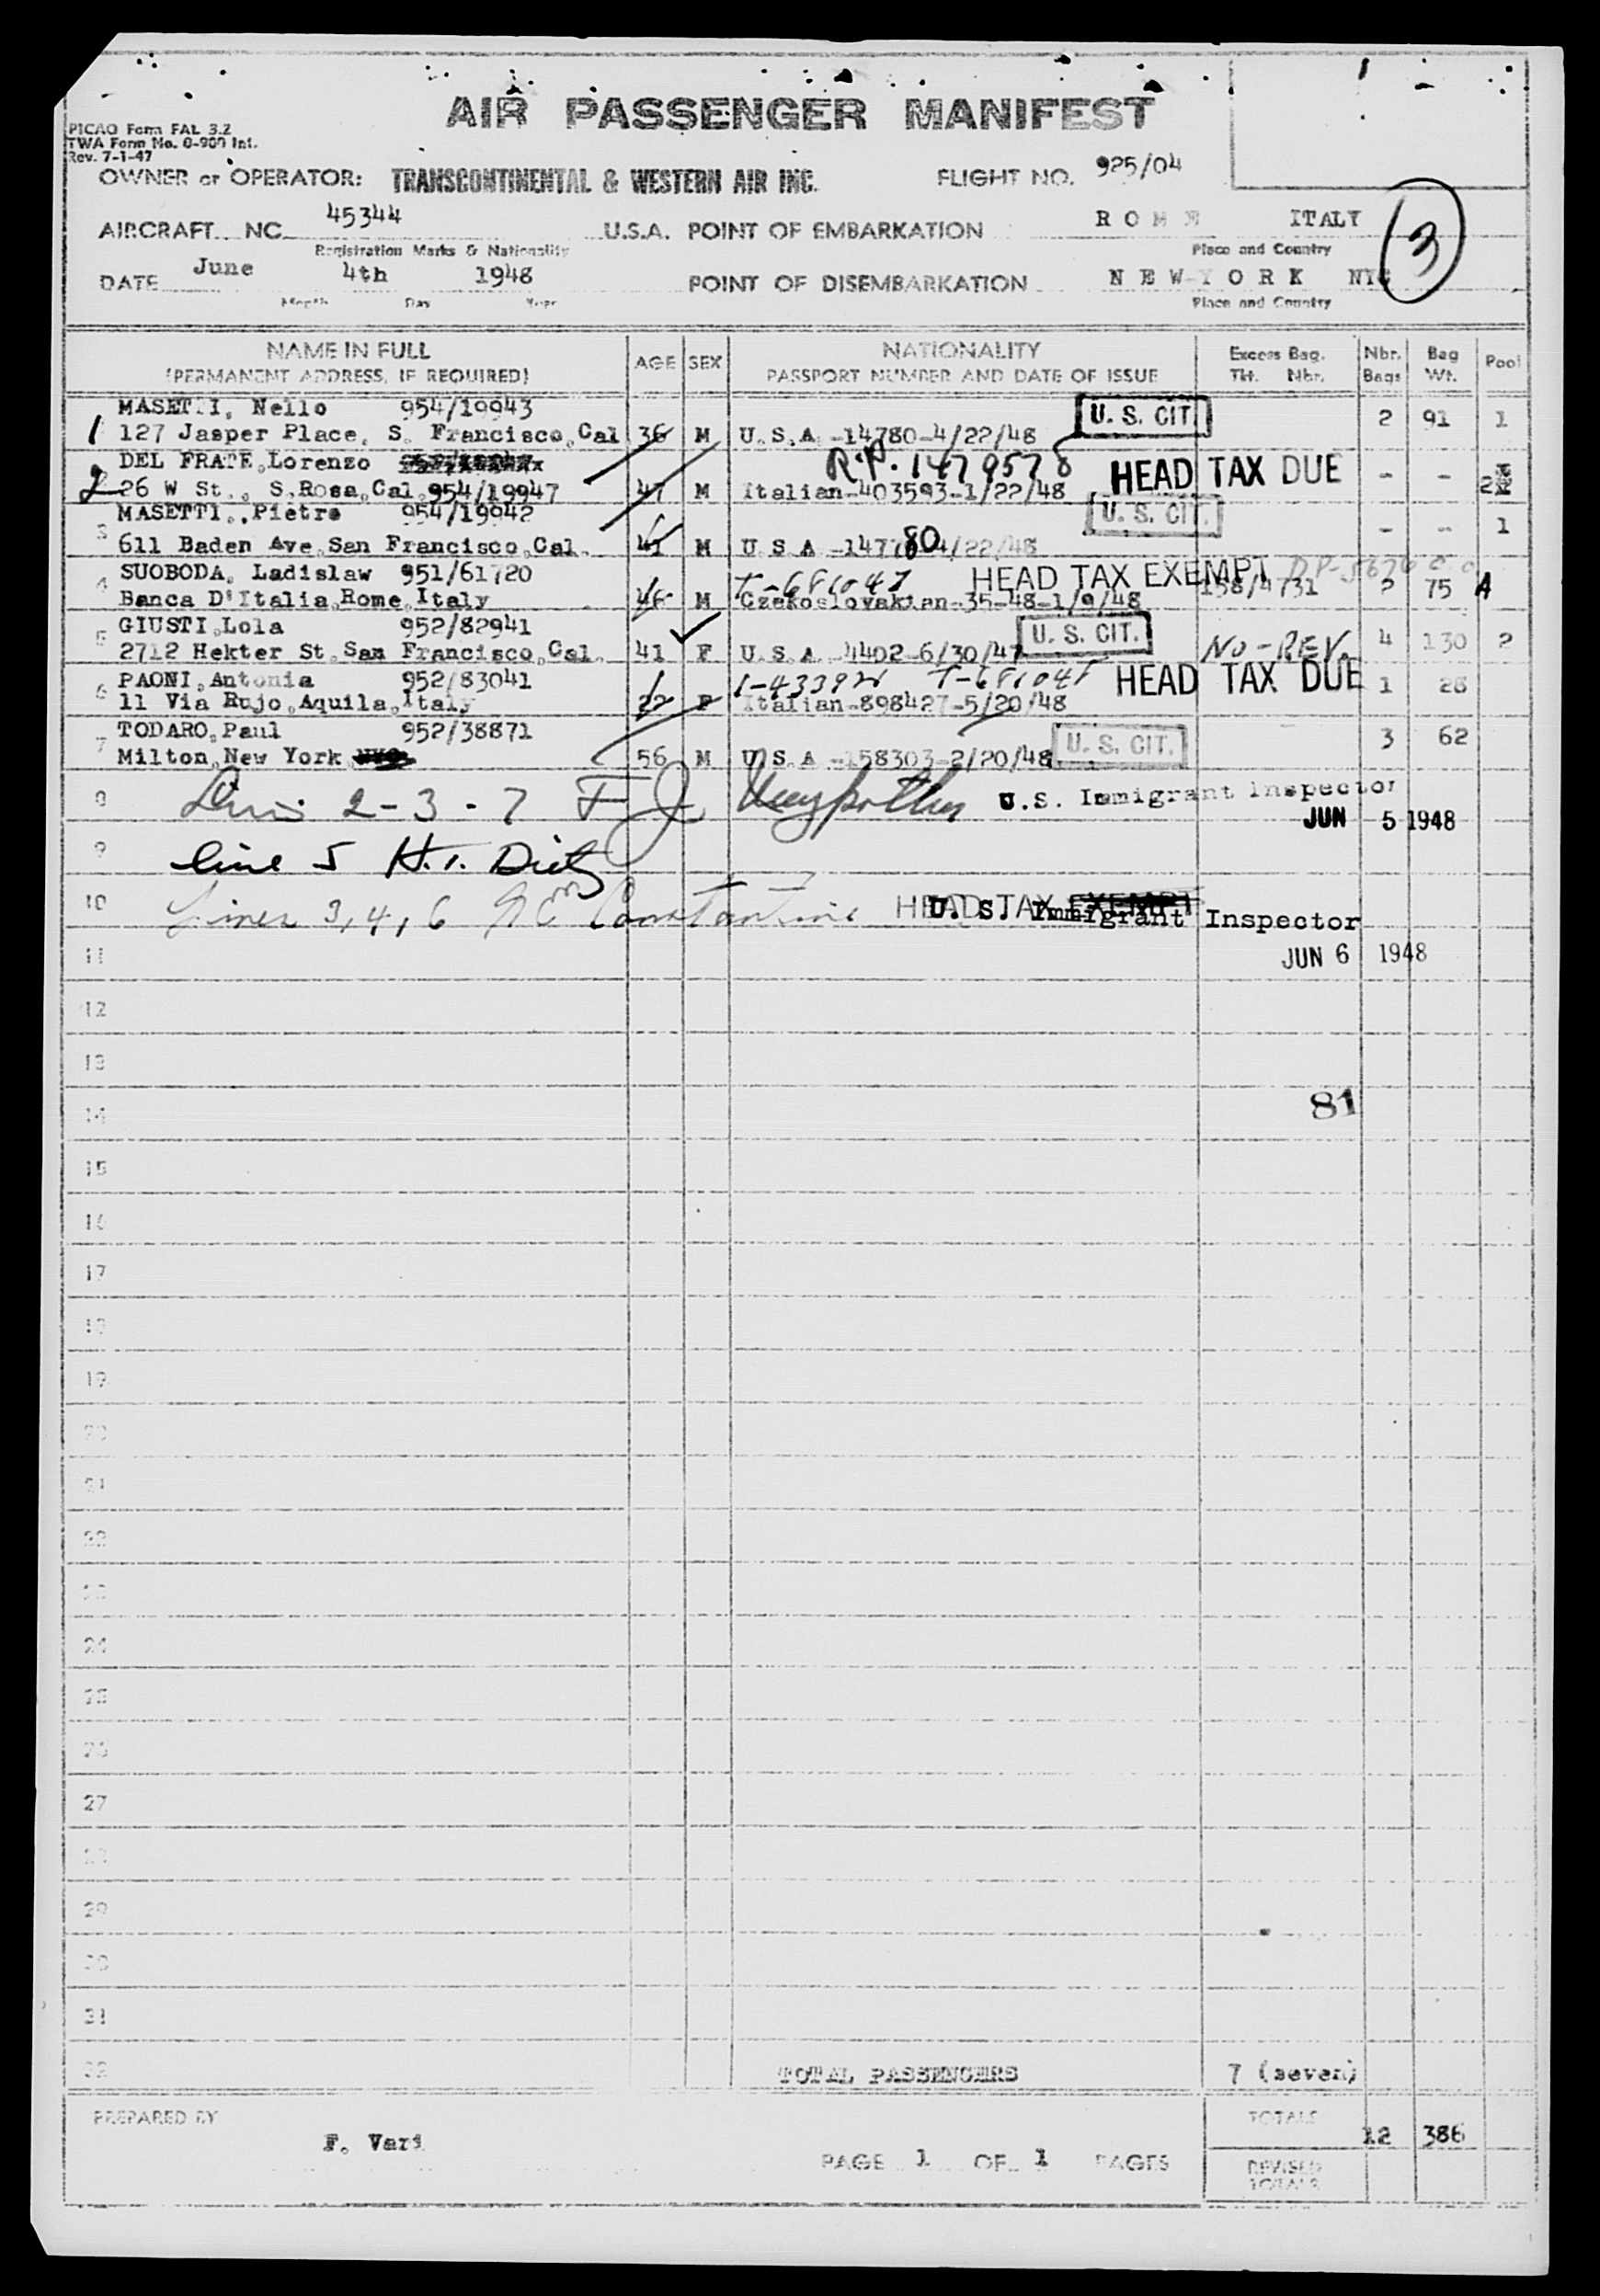 AIR PASSENGER MANIFEST
PICAO Form FAL 3.2
TWA Form No. 0-900 Int.
Rev. 7-1-47
OWNER or OPERATOR: TRANSCONTINENTAL & WESTERN AIR INC. FLIGHT NO. 925/04
AIRCRAFT NC 45344 U.S.A. POINT OF EMBARKATION ROME ITALY
Registration Marks & Nationality Place and Country
3
DATE June 4th 1948 POINT OF DISEMBARKATION NEW YORK
Month Day Year Place and Country
NAME IN FULL AGE SEX NATIONALITY Excess Bag. Nbr. Bag Pool
(PERMANENT ADDRESS, IF REQUIRED) PASSPORT NUMBER AND DATE OF ISSUE Tkt. Nbr. Bags Wt.
MASETTI, Nello 954/19943 U. S. CIT. 2 91 1
1 127 Jasper Place, S. Francisco,Cal 36 M U.S.A -14780-4/22/48
DEL FRATE,Lorenzo R.P. 1479578 HEAD TAX DUE - -
2 26 W St., S.Rosa,Cal.954/19947 47 M Italian-403593-1/22/48 2
MASETTI,,Pietro 954/19942 U. S. CIT. - - 1
3 611 Baden Ave,San Francisco,Cal. 41 M U S A 80 4/22/48
SUOBODA, Ladislaw 951/61720 T-681047 HEAD TAX EXEMPT 158/4731 2 75 A
4 Banca D'Italia,Rome,Italy 46 M Czekoslovakian-35-48-1/9/48
GIUSTI,Lola 952/82941 U. S. CIT. NO-REV. 4 130 2
5 2712 Hekter St.San Francisco,Cal. 41 F U.S.A. 4402-6/30/47
PAONI,Antonia 952/83041 HEAD TAX DUE 1 28
6 11 Via Rujo,Aquila,Italy 22 F Italian-898427-5/20/48
TODARO,Paul 952/38871 U. S. CIT. 3 62
7 Milton,New York 56 M U S A -158303-2/20/48
8 2-3-7 F J U.S. Immigrant Inspector
JUN 5 1948
9 line 5 H.
10 Lines 3,4,6 Constantine HEAD TAX EXEMPT
U. S. Immigrant Inspector
11 JUN 6 1948
12
13
14 81
15
16
17
18
19
20
21
22
23
24
25
26
27
28
29
30
31
32 TOTAL PASSENGERS 7 (seven)
PREPARED BY TOTALS 12 386
F. Vari
PAGE 1 OF 1 PAGES REVISED
TOTALS